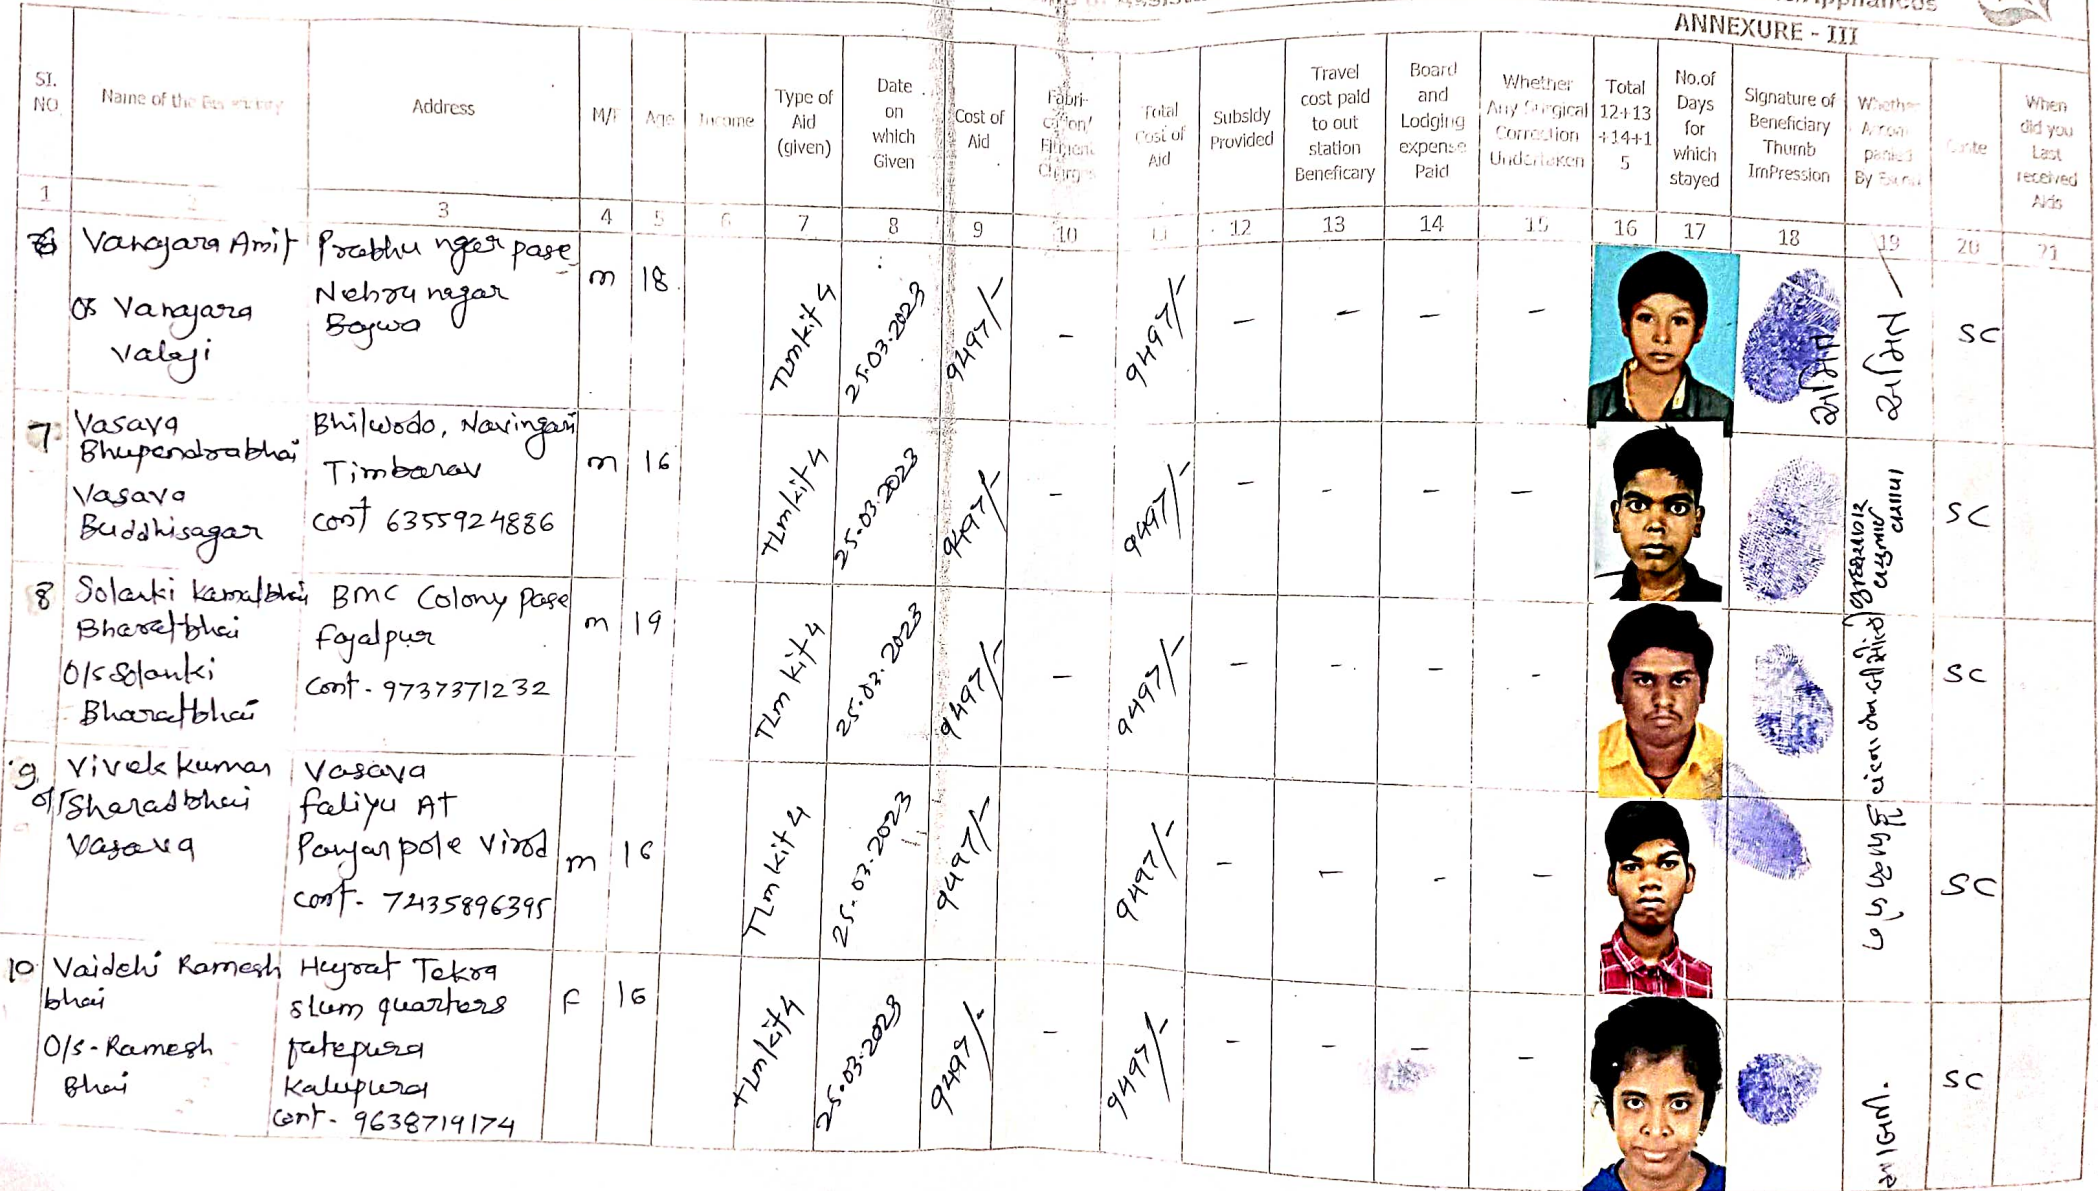 ANNEXURE - III
SI. NO.
Name of the
Address
M/F
Age
Income
Type of Aid (given)
Date on which Given
Cost of Aid
Fabri-cation/ Fitment Charges
Total Cost of Aid
Subsidy Provided
Travel cost paid to out station Beneficary
Board and Lodging expense Paid
Whether Any Surgical Correction Undertaken
Total 12+13 +14+1 5
No.of Days for which stayed
Signature of Beneficiary Thumb ImPression
Whether Accom panied By
Caste
When did you Last received Aids
1 2 3 4 5 6 7 8 9 10 11 12 13 14 15 16 17 18 19 20 21
Vanajara Amit
O/s Vanajara
Valaji
Prabhu ngar pase
Nehru nagar
Bajwa
m 18 TLmkit 4 25.03.2023 9497/- - 9497/- - - - - અમિત અમિત - SC
7
Vasava
Bhupendrabhai
Vasava
Buddhisagar
Bhilwado, Navingari
Timbarav
cont 6355924886
m 16 TLmkit 4 25.03.2023 9497/- - 9497/- - - - - SC
8
Solanki Kamalbhai
Bharatbhai
O/s Solanki
Bharatbhai
BMC Colony pase
fajalpur
cont - 9737371232
m 19 TLm kit 4 25.03.2023 9497/- - 9497/- - - - - SC
9
Vivek kumar
of Sharadbhai
Vasava
Vasava
faliyu At
Panjar pole Virod
cont - 7435896395
m 16 TLm kit 4 25.03.2023 9497/- 9497/- - - - - SC
10
Vaidehi Ramesh
bhai
O/s - Ramesh
Bhai
Hujrat Tekra
slum quarters
fatepura
Kalupura
cont - 9638719174
F 16 TLmkit 4 25.03.2023 9497/- - 9497/- - - - - SC